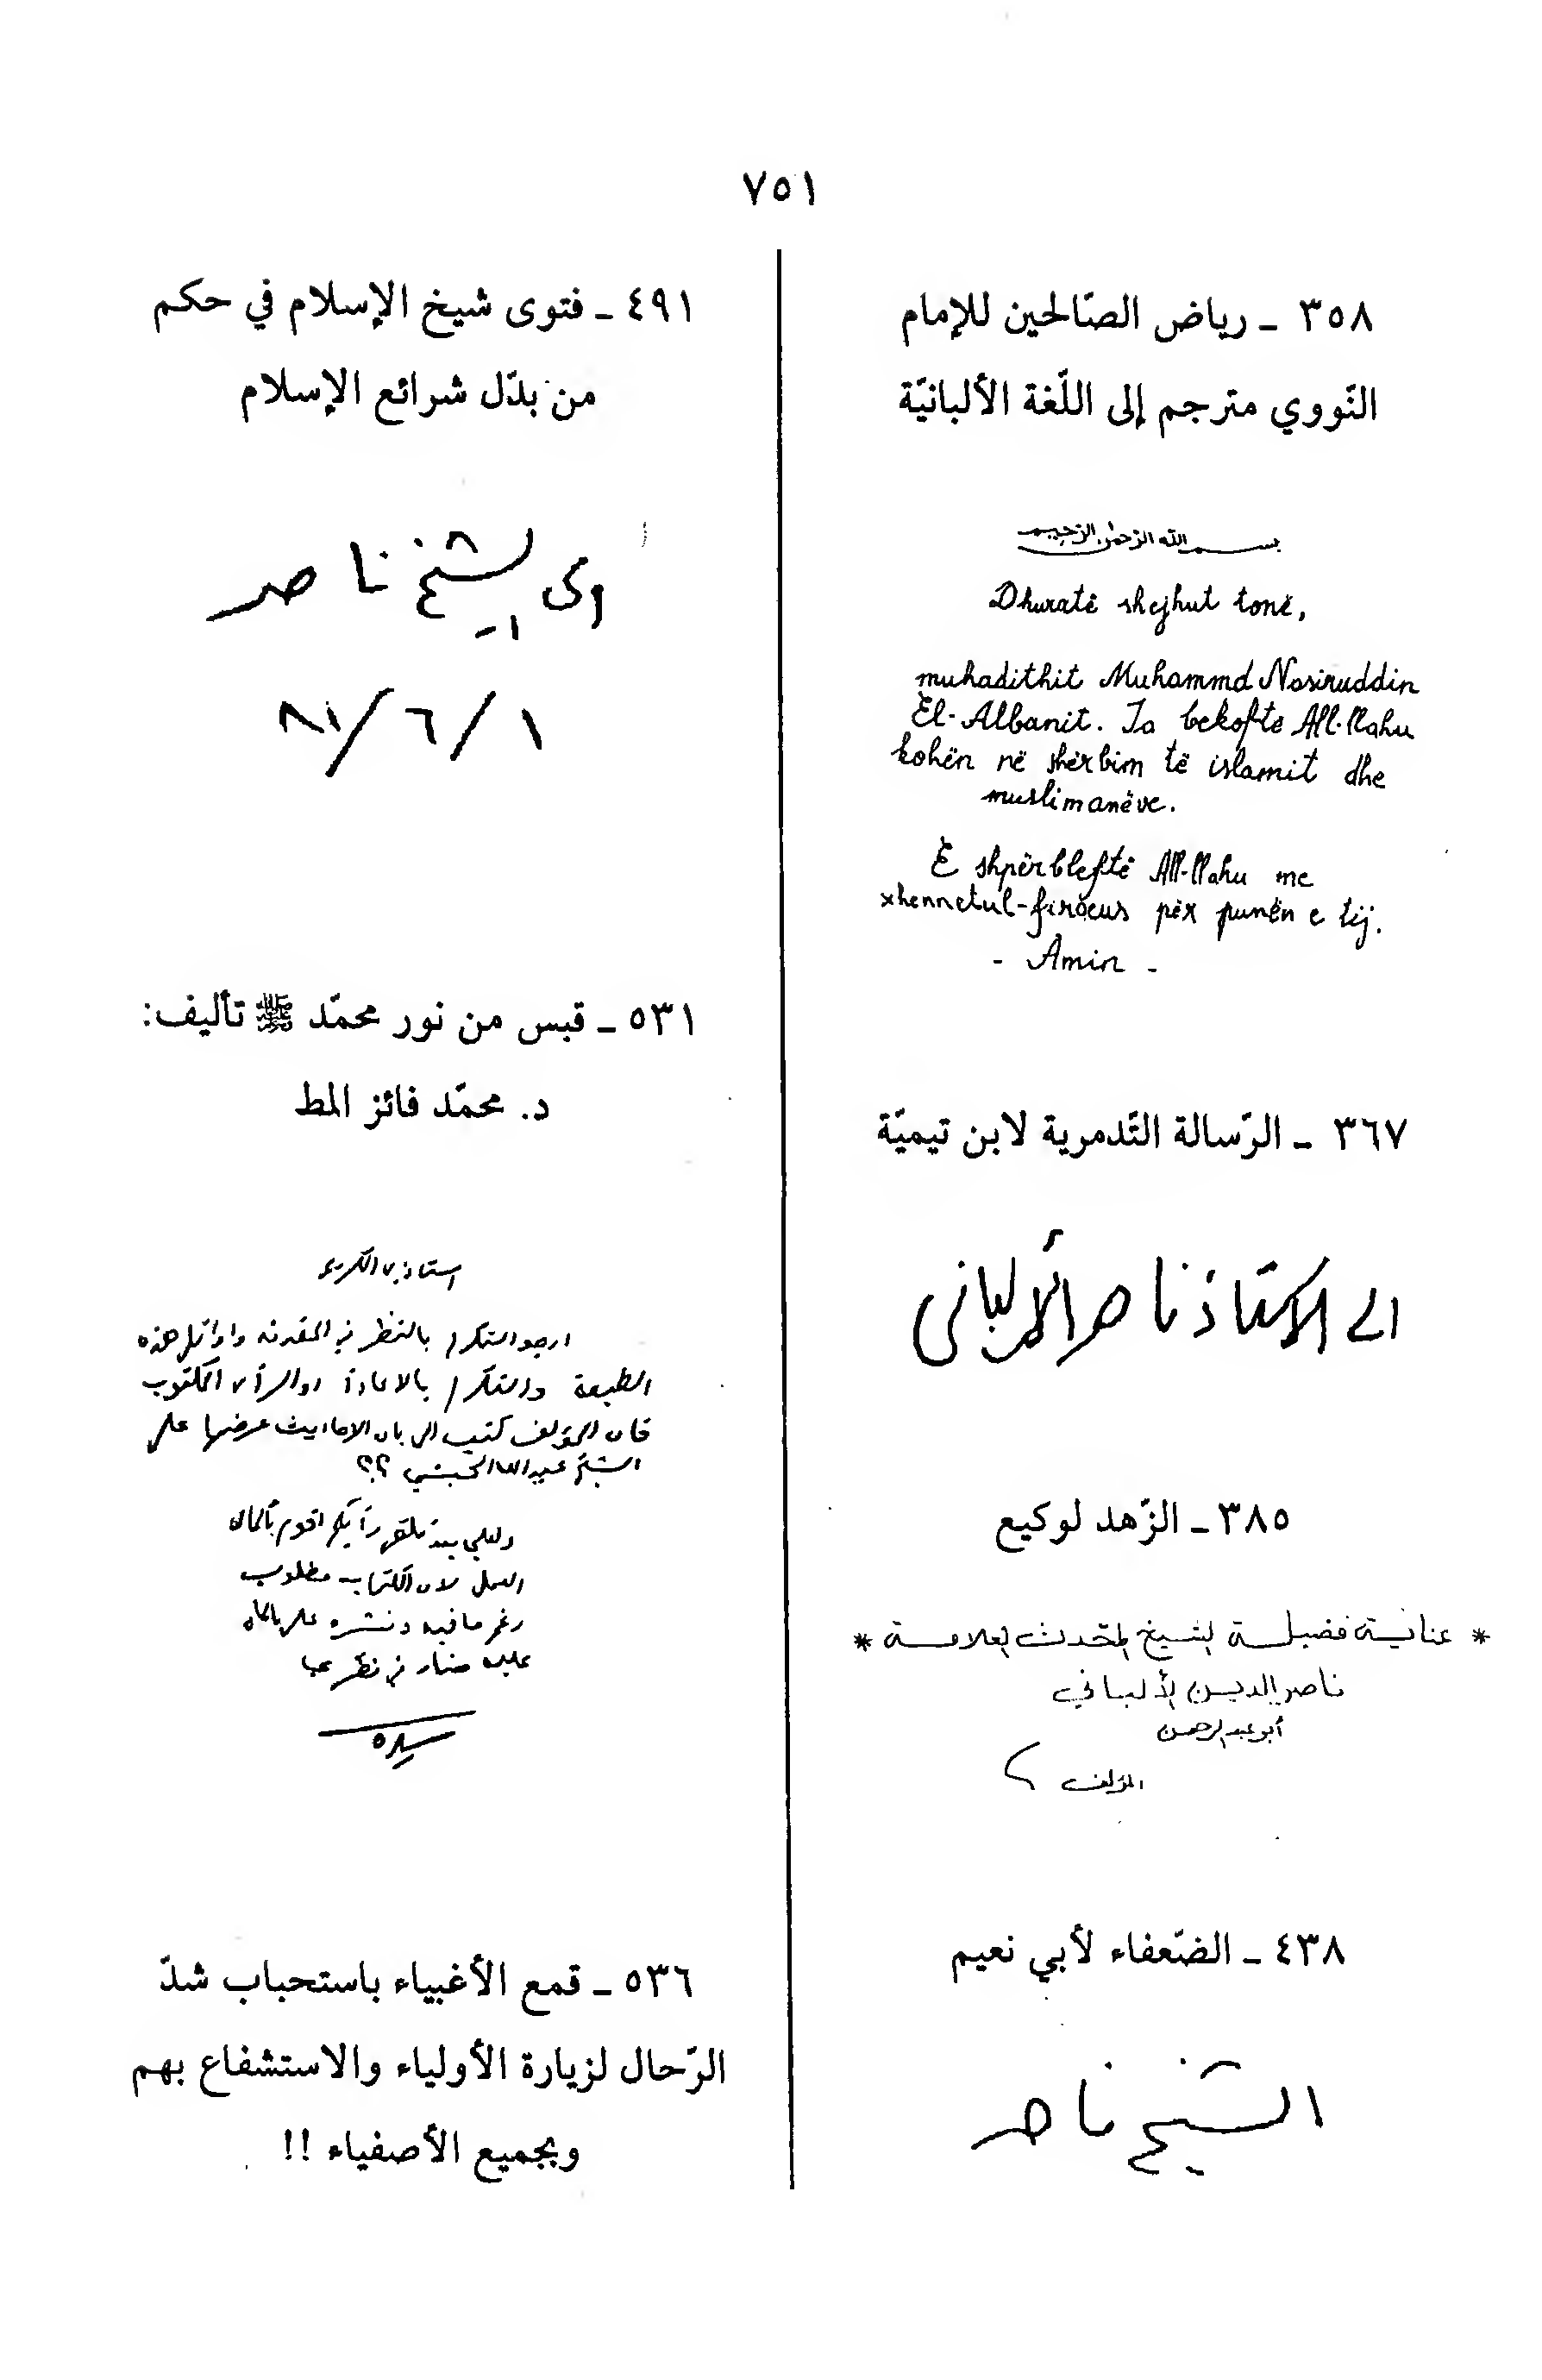 ٧٥١
٣٥٨ ـ رياض الصّالحين للإمام
النّووي مترجم إلى اللّغة الألبانيّة
بسم الله الرحمن الرحيم
Dhuratë shejhut tonë,
muhadithit Muhammd Nasiruddin
El-Albanit. Ja bekoftë All-llahu
kohën në shërbim të islamit dhe
muslimanëve.
E shpërbleftë All-llahu me
xhennetul-firdeus për punën e tij.
- Amin -
٣٦٧ ـ الرّسالة التّدمرية لابن تيميّة
الى الاستاذ ناصر الألباني
٣٨٥ ـ الزّهد لوكيع
* عناية فضيلة الشيخ المحدث العلامة *
ناصر الدين الألباني
أبو عبد الرحمن
المؤلف
٤٣٨ ـ الضّعفاء لأبي نعيم
الشيخ ناصر
٤٩١ ـ فتوى شيخ الإسلام في حكم
من بدّل شرائع الإسلام
الشيخ ناصر
٨١/٦/١
٥٣١ ـ قبس من نور محمّد ﷺ تأليف:
د. محمّد فائز المط
استاذي الكريم
ارجو التكرم بالنظر في المقدمة واوائل هذه
الطبعة والتكرم بالاعادة والرأي المكتوب
فان المؤلف كتب الي بان الاحاديث عرضها على
الشيخ عبد الله الحبشي ؟؟
ولعلي بعد رأيكم اقوم
العمل لان الكتاب مطلوب
رغم ما فيه ونشره
عليه في
٥٣٦ ـ قمع الأغبياء باستحباب شدّ
الرّحال لزيارة الأولياء والاستشفاع بهم
وبجميع الأصفياء !!